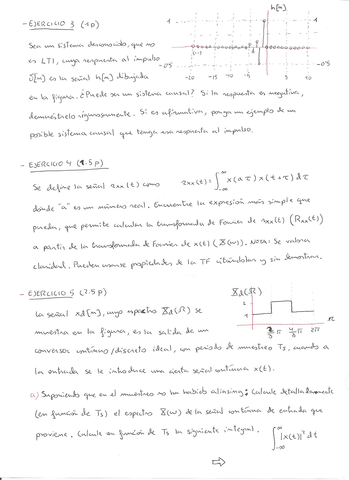 - EJERCICIO 3 (1p)
h[n]
Sea un sistema desconocido, que no
es LTI, cuya respuesta al impulso
δ[n] es la señal h[n] dibujada
-20 -15 -10 -5 5 10
en la figura. ¿Puede ser un sistema causal? Si la respuesta es negativa,
demuéstrelo rigurosamente. Si es afirmativa, ponga un ejemplo de un
posible sistema causal que tenga esa respuesta al impulso.
- EJERCICIO 4 (1.5p)
Se define la señal rxx(t) como rxx(t) = ∫_{-∞}^{∞} x(aτ) x(t+τ) dτ
donde "a" es un número real. Encuentre la expresión más simple que
pueda, que permite calcular la transformada de Fourier de rxx(t)
a partir de la transformada de Fourier de x(t) (X(ω)). NOTA: Se valora
claridad. Pueden usarse propiedades de la TF citándolas y sin demostrar.
- EJERCICIO 5 (2.5p)
Xd(Ω)
La señal xd[n], cuyo espectro Xd(Ω) se
muestra en la figura, es la salida de un
conversor continuo/discreto ideal, con periodo de muestreo Ts, cuando a
la entrada se le introduce una cierta señal continua x(t).
a) Suponiendo que en el muestreo no ha habido aliasing: Calcule detalladamente
(en función de Ts) el espectro X(ω) de la señal continua de entrada que
proviene. Calcule en función de Ts la siguiente integral. ∫_{-∞}^{∞} |x(t)|² dt
⇨